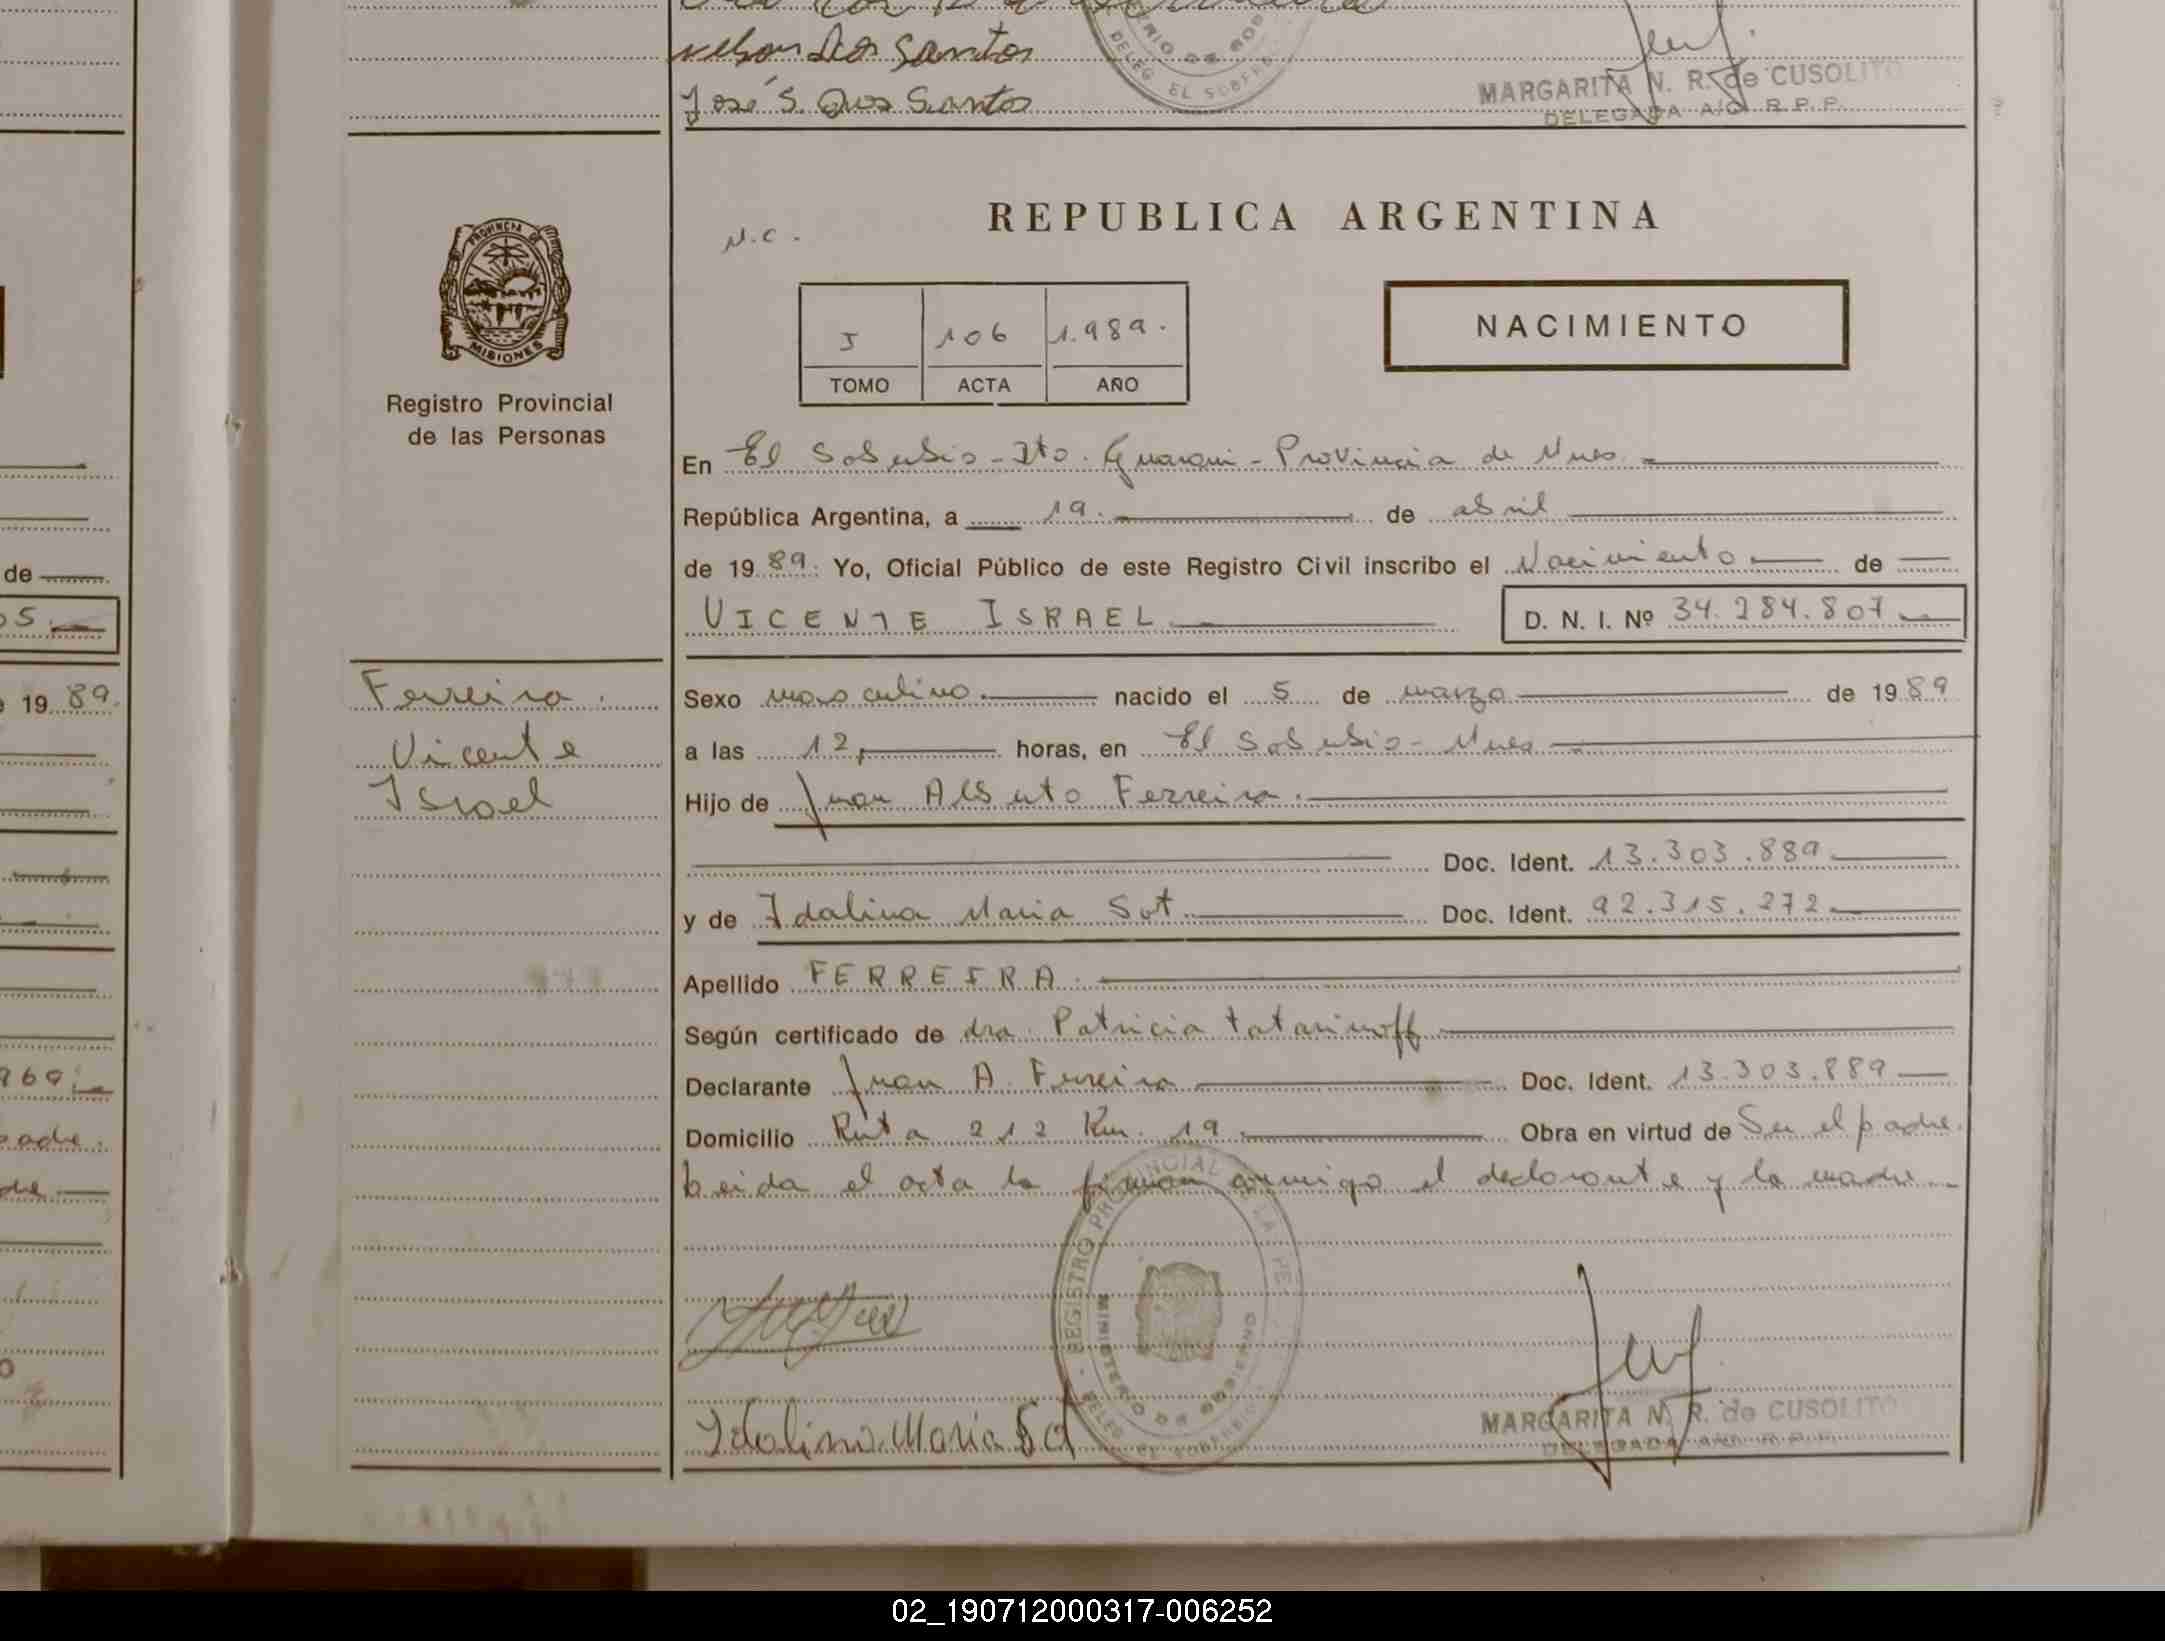 Nelson Dos Santos
José S. Dos Santos
DELEG. EL SOBERBIO
MARGARITA N. R. de CUSOLITO
DELEGADA A/C. R. P. P.
PROVINCIA DE
MISIONES
Registro Provincial
de las Personas
N.C.
REPUBLICA ARGENTINA
I 106 1.989.
TOMO ACTA AÑO
NACIMIENTO
En El Soberbio - Dto. Guarani - Provincia de Mnes.
República Argentina, a 19. de abril
de 1989. Yo, Oficial Público de este Registro Civil inscribo el Nacimiento de
VICENTE ISRAEL D. N. I. Nº 34.284.807
Ferreira.
Vicente
Israel
Sexo masculino. nacido el 5 de marzo de 1989
a las 12, horas, en El Soberbio - Mnes
Hijo de Juan Alberto Ferreira.
Doc. Ident. 13.303.889
y de Idalina Maria Sot. Doc. Ident. 92.315.272
Apellido FERREIRA.
Según certificado de dra. Patricia Tatarinoff
Declarante Juan A. Ferreira Doc. Ident. 13.303.889
Domicilio Ruta 212 Km. 19 Obra en virtud de Ser el padre.
Leida el acta la firman conmigo el declarante y la madre.
REGISTRO PROVINCIAL DE LA PE
MINISTERIO DE GOBIERNO
DELEG. EL SOBERBIO
Idalina Maria Sot
MARGARITA N. R. de CUSOLITO
DELEGADA A/C. R. P. P.
de
05.
19 89.
969.
padre.
02_190712000317-006252